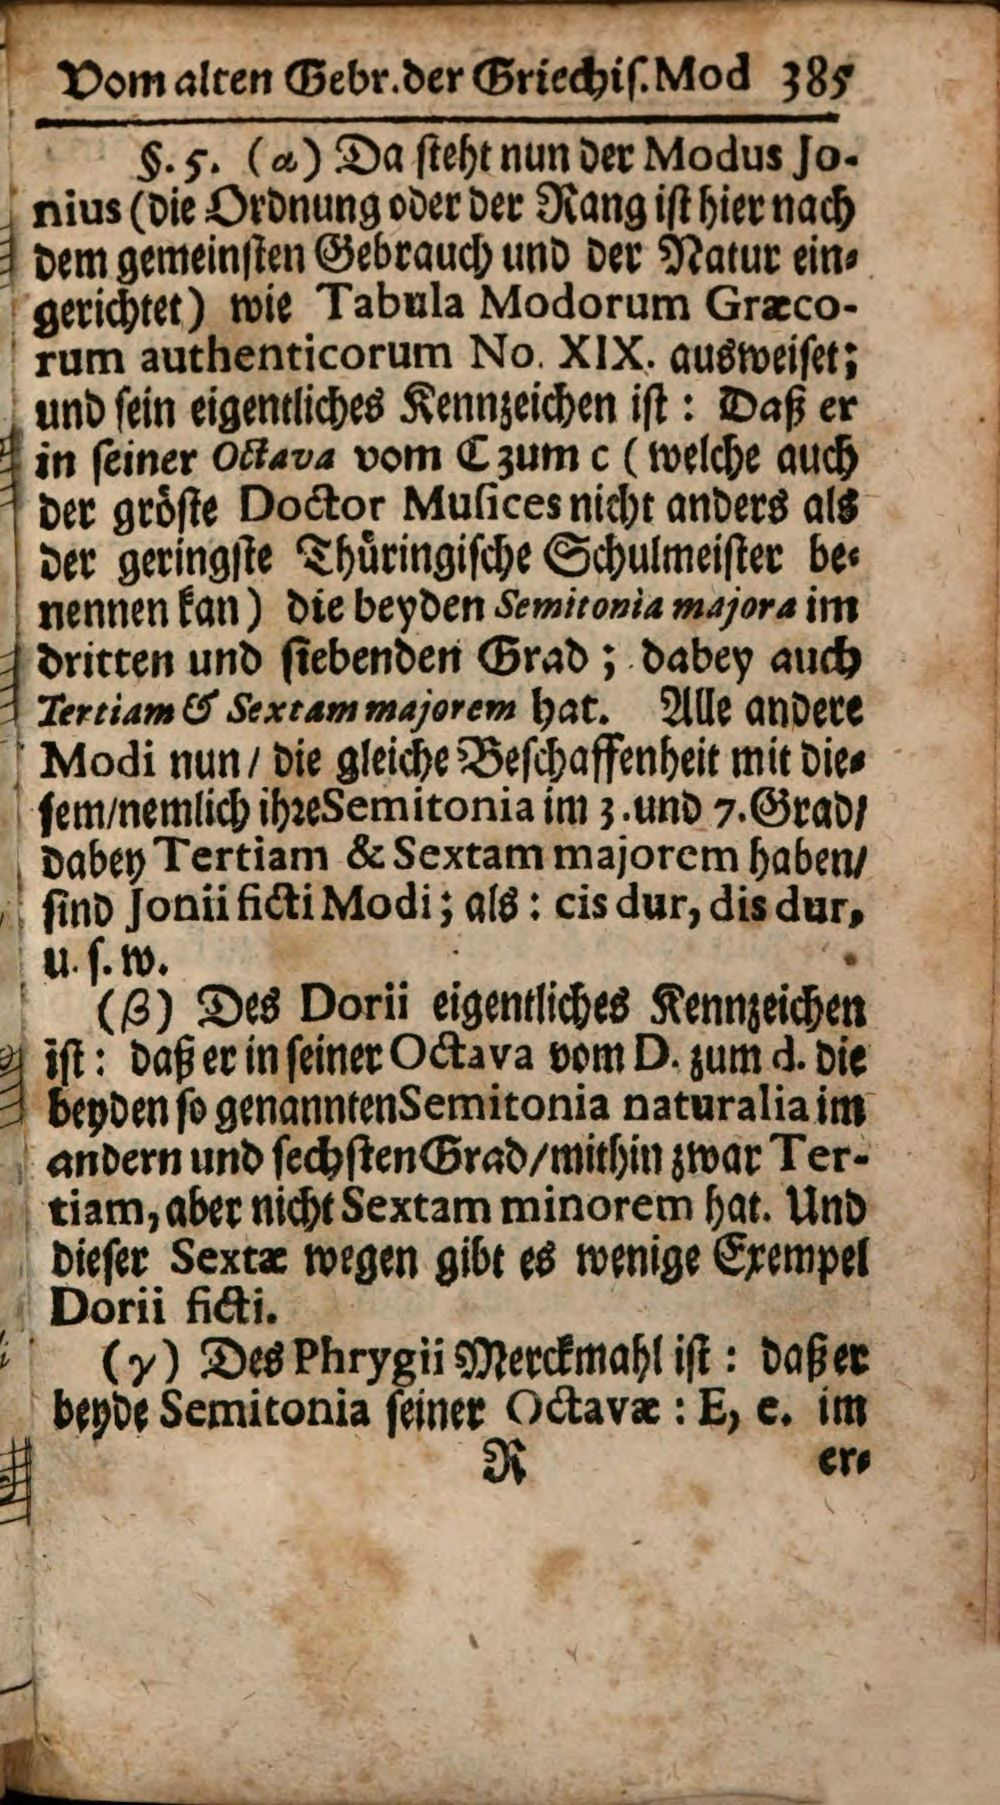 Vom alten Gebr. der Griechis. Mod 385
§. 5. (α) Da steht nun der Modus Jo-
nius (die Ordnung oder der Rang ist hier nach
dem gemeinsten Gebrauch und der Natur ein-
gerichtet) wie Tabula Modorum Græco-
rum authenticorum No. XIX. ausweiset;
und sein eigentliches Kennzeichen ist: Daß er
in seiner Octava vom C zum c (welche auch
der gröste Doctor Musices nicht anders als
der geringste Thüringische Schulmeister be-
nennen kan) die beyden Semitonia majora im
dritten und siebenden Grad; dabey auch
Tertiam & Sextam majorem hat. Alle andere
Modi nun/ die gleiche Beschaffenheit mit die-
sem/ nemlich ihre Semitonia im 3. und 7. Grad/
dabey Tertiam & Sextam majorem haben/
sind Jonii ficti Modi; als: cis dur, dis dur,
u. s. w.
(β) Des Dorii eigentliches Kennzeichen
ist: daß er in seiner Octava vom D. zum d. die
beyden so genannten Semitonia naturalia im
andern und sechsten Grad/ mithin zwar Ter-
tiam, aber nicht Sextam minorem hat. Und
dieser Sextæ wegen gibt es wenige Exempel
Dorii ficti.
(γ) Des Phrygii Merckmahl ist: daß er
beyde Semitonia seiner Octavæ: E, e. im
R er-